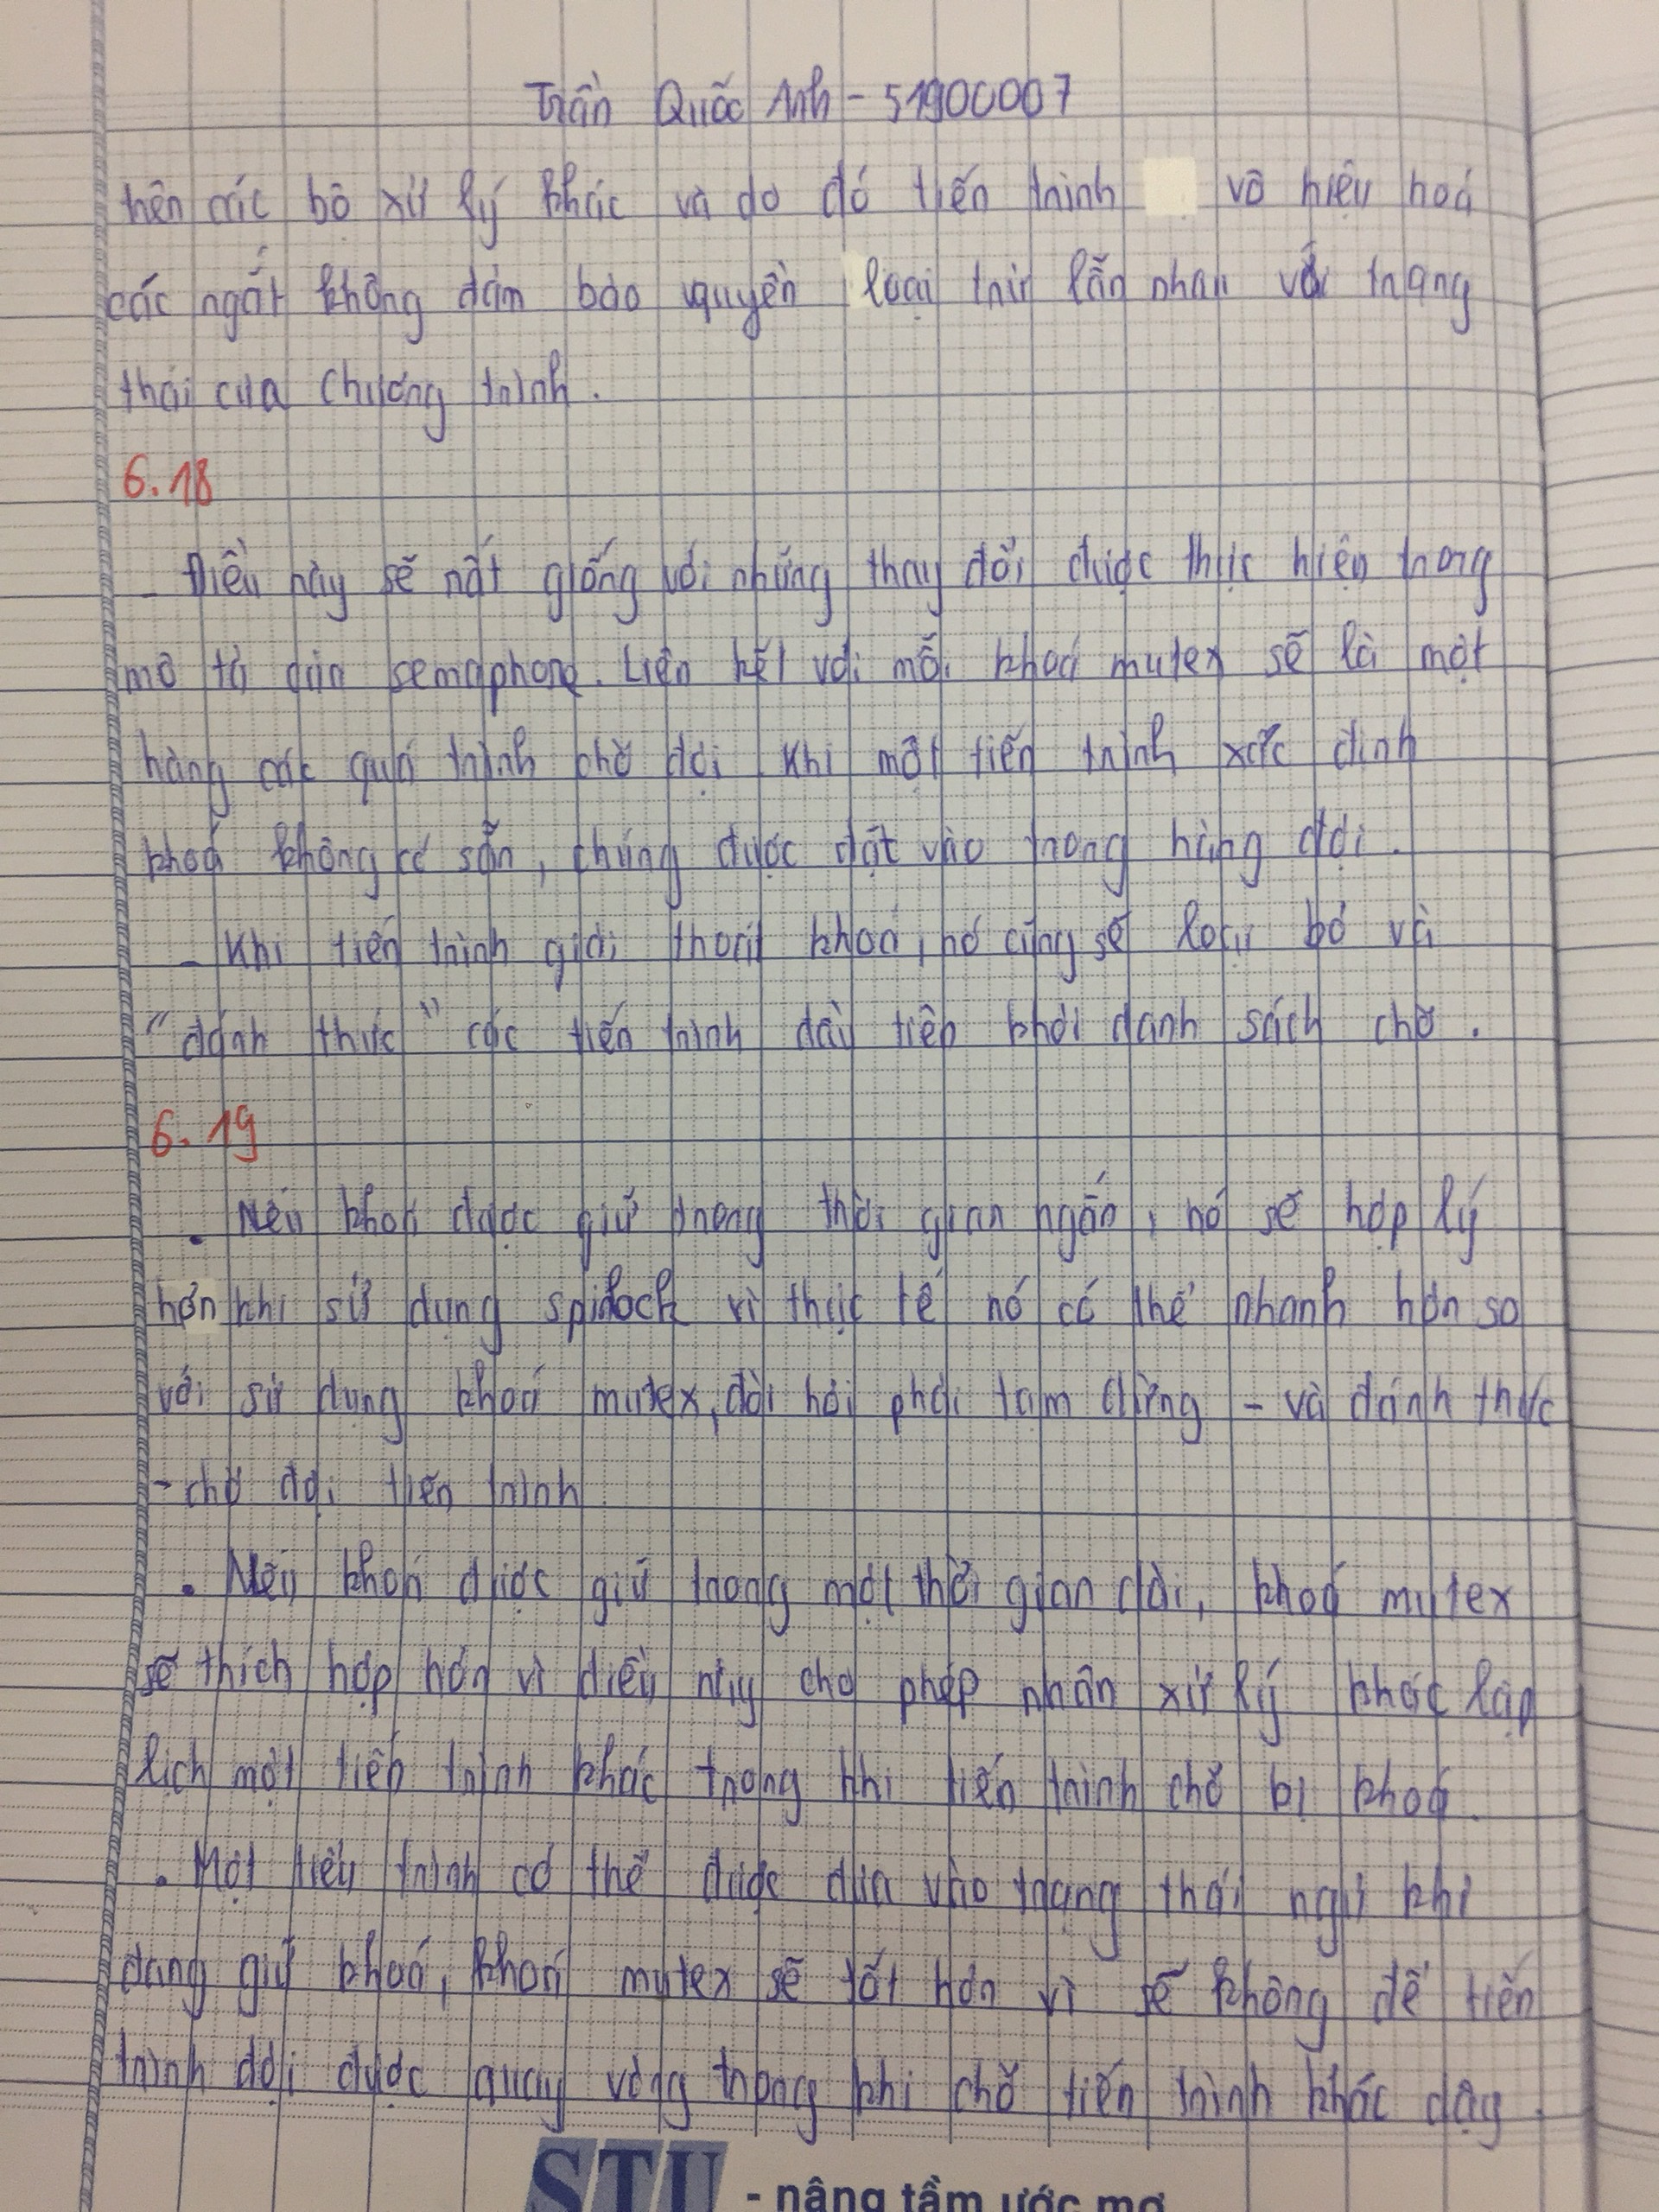 Trần Quốc Anh - 51900007
trên các bộ xử lý khác và do đó tiến trình vô hiệu hoá
các ngắt không đảm bảo quyền loại trừ lẫn nhau với trạng
thái của chương trình.
6.18
- Điều này sẽ rất giống với những thay đổi được thực hiện trong
mô tả của semaphore. Liên kết với mỗi khoá mutex sẽ là một
hàng các quá trình chờ đợi Khi một tiến trình xác định
khoá không có sẵn, chúng được đặt vào trong hàng đợi.
- Khi tiến trình giải thoát khoá, nó cũng sẽ loại bỏ và
"đánh thức" các tiến trình đầu tiên khỏi danh sách chờ.
6.19
. Nếu khoá được giữ trong thời gian ngắn, nó sẽ hợp lý
hơn khi sử dụng spinlock vì thực tế nó có thể nhanh hơn so
với sử dụng khoá mutex, đòi hỏi phải tạm dừng - và đánh thức
- chờ đợi tiến trình
. Nếu khoá được giữ trong một thời gian dài, khoá mutex
sẽ thích hợp hơn vì điều này cho phép nhân xử lý khác lập
lịch một tiến trình khác trong khi tiến trình chờ bị khoá.
. Một tiến trình có thể được đưa vào trạng thái ngủ khi
đang giữ khoá, khoá mutex sẽ tốt hơn vì sẽ không để tiến
trình đợi được quay vòng trong khi chờ tiến trình khác dậy.
STU - nâng tầm ước mơ